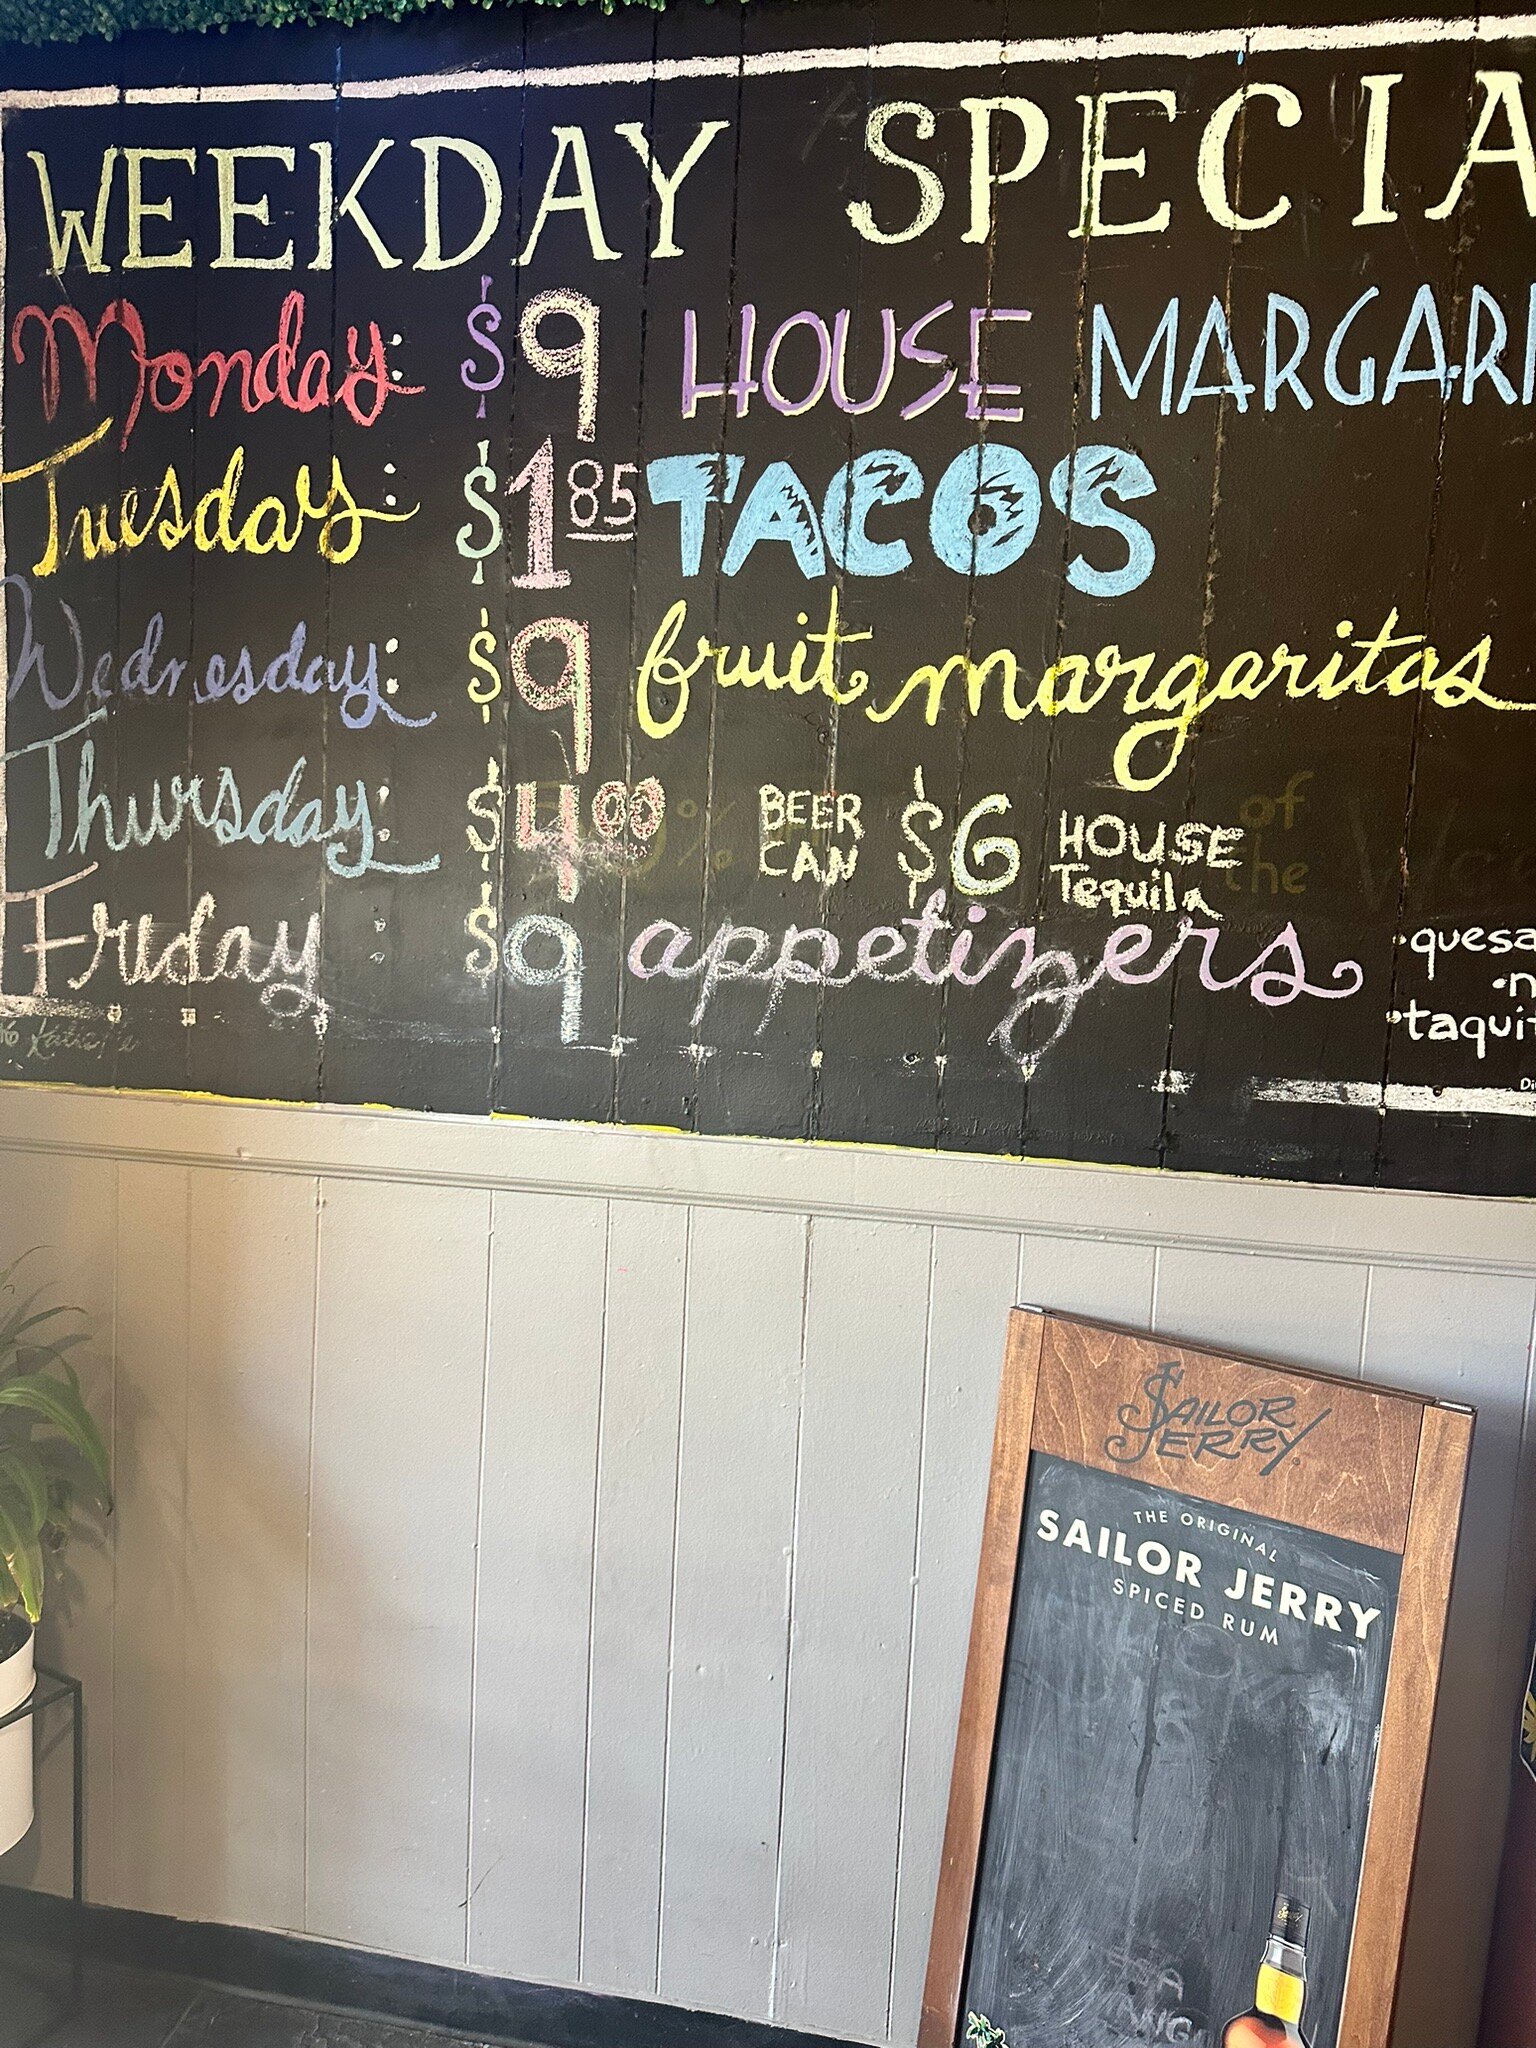 WEEKDAY SPECIA
Monday: $9 HOUSE MARGARI
Tuesday: $1 85 TACOS
Wednesday: $9 fruit margaritas
Thursday: $4 00 BEER CAN $6 HOUSE Tequila
of
the
Friday: $9 appetizers
•quesa
•n
•taquit
Di
SAILOR
JERRY
THE ORIGINAL
SAILOR JERRY
SPICED RUM